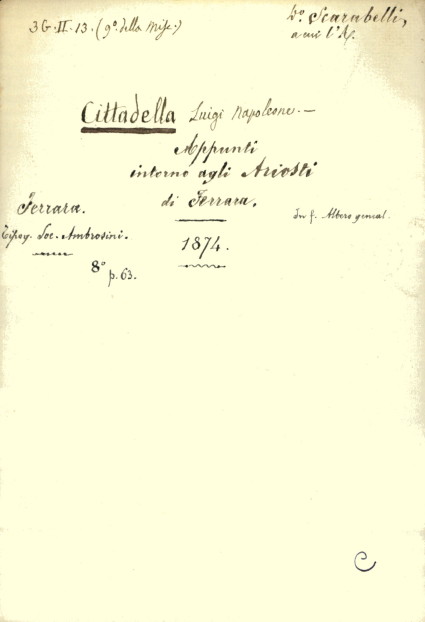 36.II.13. (9ª. della Misc.)
Dº. Scarabelli,
a cui l'A.
Cittadella Luigi Napoleone.—
Appunti
intorno agli Ariosti
di Ferrara.
Ferrara.
In f. Albero geneal.
Tipog. Soc. Ambrosini.
1874.
8º p. 63.
C